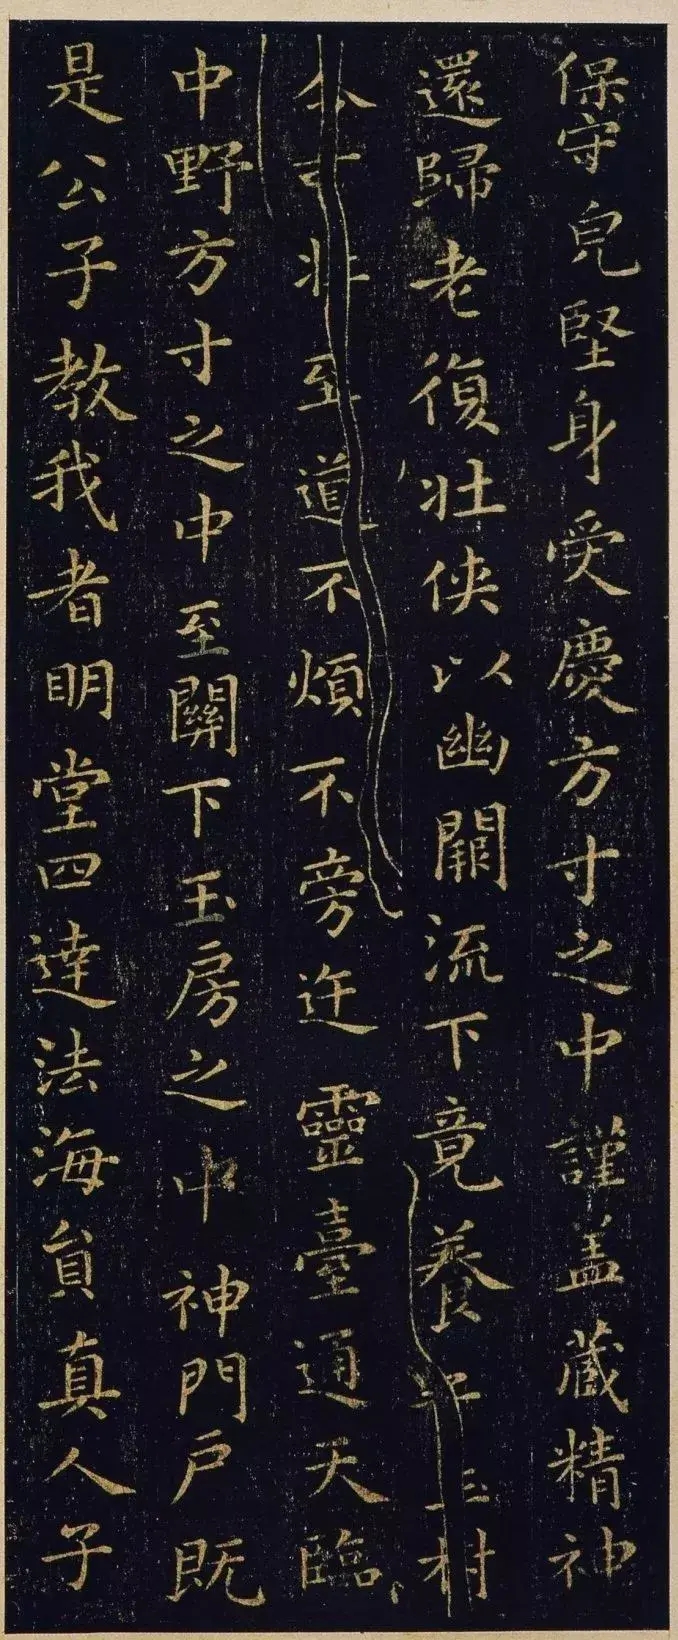 保守皃堅身受慶方寸之中謹盖藏精神
還歸老復壮俠以幽闕流下竟養玉樹
令可壮至道不煩不旁迕靈臺通天臨
中野方寸之中至關下玉房之中神門户既
是公子教我者明堂四達法海貟真人子